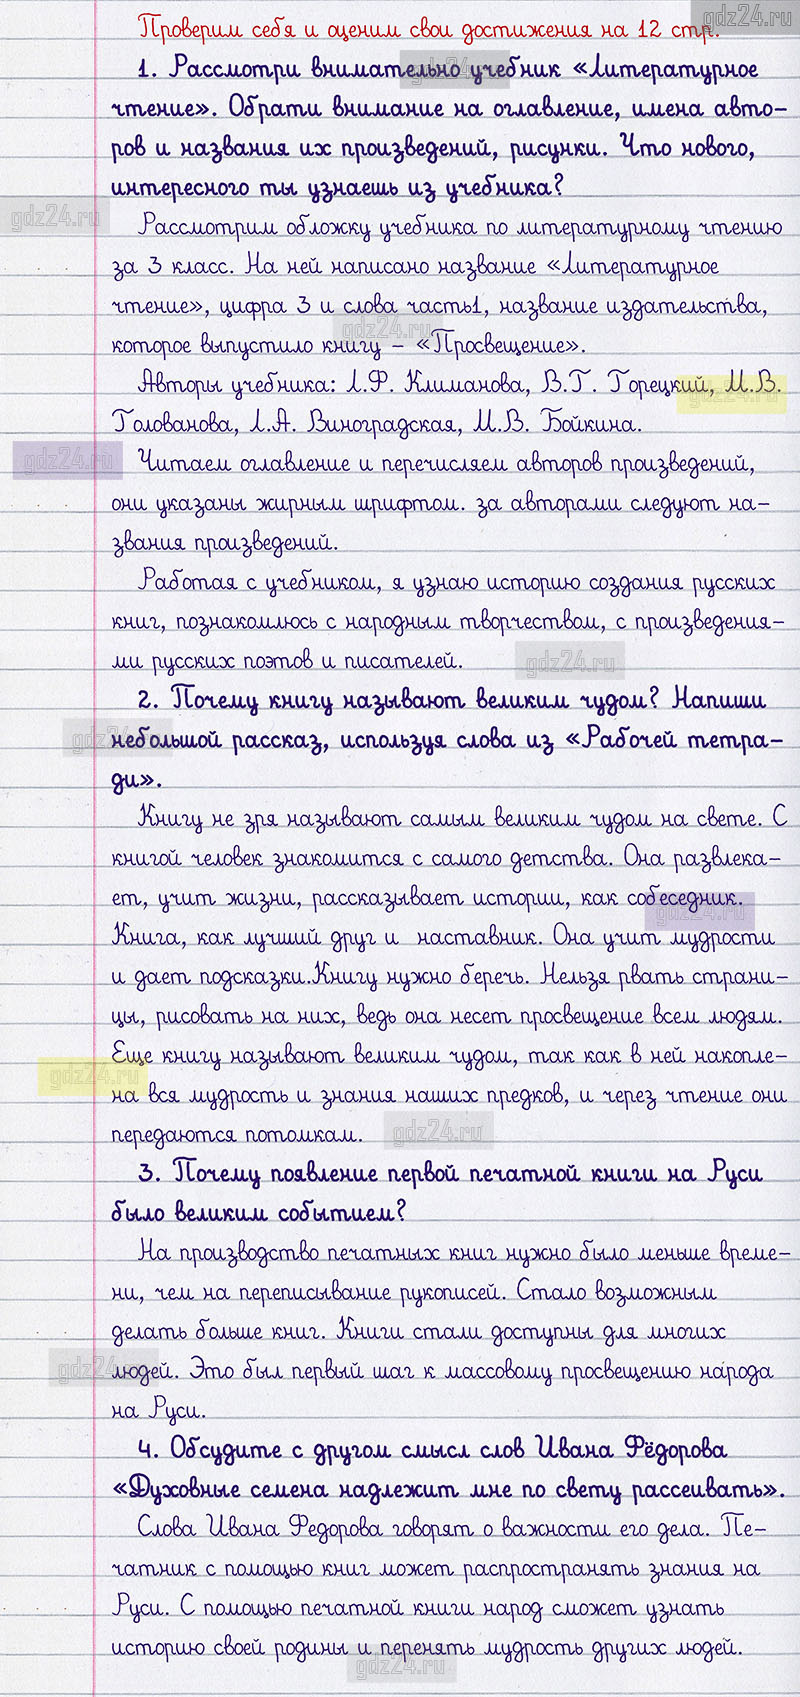 Проверим себя и оценим свои достижения на 12 стр.
gdz24.ru
1. Рассмотри внимательно учебник «Литературное
gdz24.ru
чтение». Обрати внимание на оглавление, имена авто-
ров и названия их произведений, рисунки. Что нового,
интересного ты узнаешь из учебника?
gdz24.ru
Рассмотрим обложку учебника по литературному чтению
за 3 класс. На ней написано название «Литературное
чтение», цифра 3 и слова часть1, название издательства,
gdz24.ru
которое выпустило книгу – «Просвещение».
Авторы учебника: Л.Ф. Климанова, В.Г. Горецкий, М.В.
gdz24.ru
Голованова, Л.А. Виноградская, М.В. Бойкина.
gdz24.ru
Читаем оглавление и перечисляем авторов произведений,
они указаны жирным шрифтом. за авторами следуют на-
звания произведений.
Работая с учебником, я узнаю историю создания русских
книг, познакомлюсь с народным творчеством, с произведения-
ми русских поэтов и писателей.
gdz24.ru
2. Почему книгу называют великим чудом? Напиши
небольшой рассказ, используя слова из «Рабочей тетра-
gdz24.ru
ди».
Книгу не зря называют самым великим чудом на свете. С
книгой человек знакомится с самого детства. Она развлека-
ет, учит жизни, рассказывает истории, как собеседник.
gdz24.ru
Книга, как лучший друг и наставник. Она учит мудрости
и дает подсказки.Книгу нужно беречь. Нельзя рвать страни-
цы, рисовать на них, ведь она несет просвещение всем людям.
Еще книгу называют великим чудом, так как в ней накопле-
gdz24.ru
на вся мудрость и знания наших предков, и через чтение они
передаются потомкам.
gdz24.ru
3. Почему появление первой печатной книги на Руси
было великим событием?
На производство печатных книг нужно было меньше време-
ни, чем на переписывание рукописей. Стало возможным
делать больше книг. Книги стали доступны для многих
gdz24.ru
людей. Это был первый шаг к массовому просвещению народа
на Руси.
4. Обсудите с другом смысл слов Ивана Фёдорова
«Духовные семена надлежит мне по свету рассеивать».
Слова Ивана Федорова говорят о важности его дела. Пе-
чатник с помощью книг может распространять знания на
Руси. С помощью печатной книги народ сможет узнать
историю своей родины и перенять мудрость других людей.
gdz24.ru